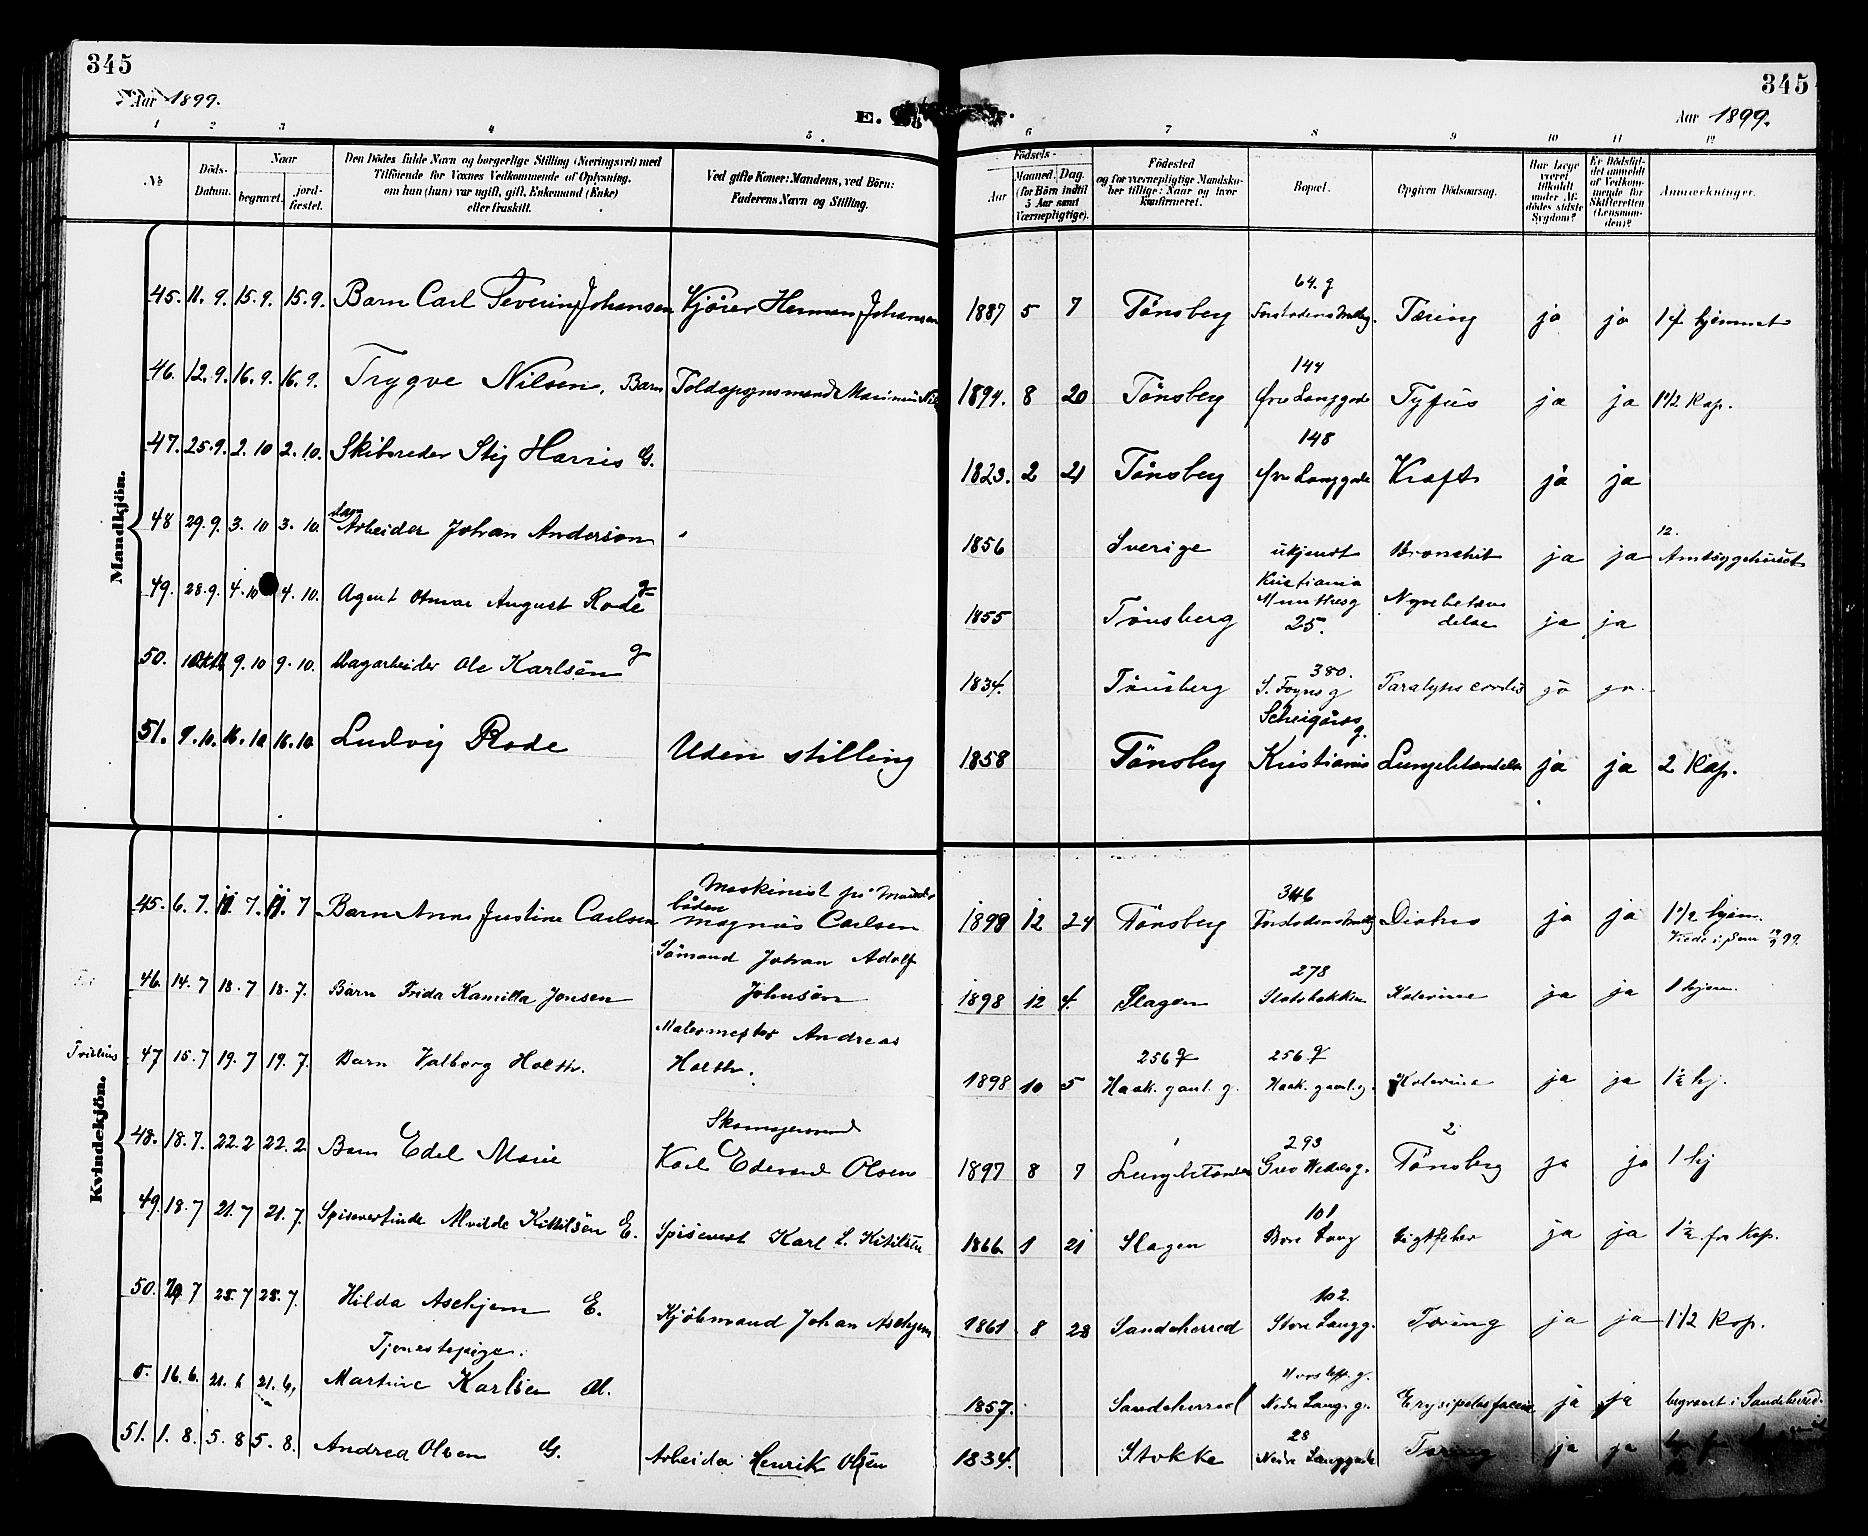 345
345
Aar 1899.
E.
Aar 1899.
1 2 3 4 5 6 7 8 9 10 11 12
№
Döds-Datum.
Naar
begravet.
jord-fæstet.
Den Dödes fulde Navn og borgerlige Stilling (Næringsvei) med
Tilföiende for Voxnes Vedkommende af Oplysning,
om hun (han) var ugift, gift, Enkemand (Enke)
eller fraskilt.
Ved gifte Koner: Mandens, ved Börn:
Faderens Navn og Stilling.
Födsels-
Aar
Maaned. Dag.
(for Börn indtil
5 Aar samt
Værnepligtige).
Födested
og for værnepligtige Mandska-
ber tillige: Naar og hvor
konfirmeret.
Bopæl.
Opgiven Dödsaarsag.
Har Læge
været
tilkaldt
under Af-
dödes sidste
Sygdom?
Er Dödsfal-
det anmeldt
af Vedkom-
mende for
Skifteretten
(Lensman-
den)?
Anmærkninger.
Mandkjön.
45. 11. 9. 15. 9. 15. 9. Barn Carl Severin Johansen Kjörer Herman Johansen 1887 5 7 Tönsberg 64. g Tæring ja ja 1 f. hjemmet
46. 12. 9. 16. 9. 16. 9. Trygve Nilsen, Barn 1894. 8 20 Tönsberg 144 Øvre Langgade Tyfus ja ja 1 1/2 Kap.
47. 25. 9. 2. 10 2. 10. Skibsreder Stig Harris G. 1823. 2 21 Tönsberg 148 Øvre Langgade Kræft ja ja
48 29. 9. 3. 10 3. 10. Arbeider Johan Anderson 1856 Sverige ukjendt Bronchit ja ja 12. Amtssygehuset
49. 28. 9. 4. 10 4. 10. Agent Otmar August Rode g 1855 Tönsberg Kristiania Munthesg 25. Nyrebetæn delse ja ja
50. 9. 10 9. 10. Dagarbeider Ole Karlsen g 1834. Tönsberg 380. S. Foyns g Paralysis cordis ja ja
51. 9. 10. 16. 10 16. 10 Ludvig Rode Uden stilling 1858 Tönsberg Schweigårds g. Kristiania Lungebetændelse ja ja 2 Kap.
Kvindekjön.
45. 6. 7. 11. 7. 11. 7 Barn Anna Justine Carlsen Maskinist på båden Magnus Carlsen 1898 12 24 Tönsberg 346 ja ja 1 1/2 hjem.
46. 14. 7 18. 7 18. 7. Barn Frida Kamilla Jonsen Sömand Johan Adolf Johnsön 1898 12 4. Slagen 278 Slotsbakken Kolerine ja ja 1 hjem.
47 15. 7 19. 7 19. 7. Barn Valborg Holth. Malermester Andreas Holth. 1898 10 5 256 g Haak. gaml. g. 256 g Haak. gaml. g. Kolerine ja ja 1 1/2 hj.
48. 18. 7. 22. 2 22. 2 Barn Edel Marie Skomagersvend Karl Edevard Olsen 1897 8 7 1 Lungebetændelse 293 Grev Wedels g. 2 Tönsberg ja ja 1 hj
49. 18. 7 21. 7 21. 7. Spisevertinde Alvilde Kittilsen E. Spisevert Karl L. Kitilsen 1866. 1 21 Slagen 101 Lang Gigtfeber ja ja 1 1/2 fra Kap.
50. 7 25. 7 25. 7. Hilda Askjem E. Kjöbmand Johan Askjem 1861 8 28 Sandeherred 102. Store Langg. Tæring ja ja 1 1/2 Kap.
0. 16. 6. 21. 6 21. 6, Tjenestepige. Martine Karlsen 1857. Sandeherred Nedre Lang. g. Erysipelas faciei ja ja begravet i Sandeherred.
51. 1. 8. 5. 8 5. 8. Andrea Olsen G. Arbeider Henrik Olsen 1834. Stokke 28 Nedre Langgade Tæring ja ja